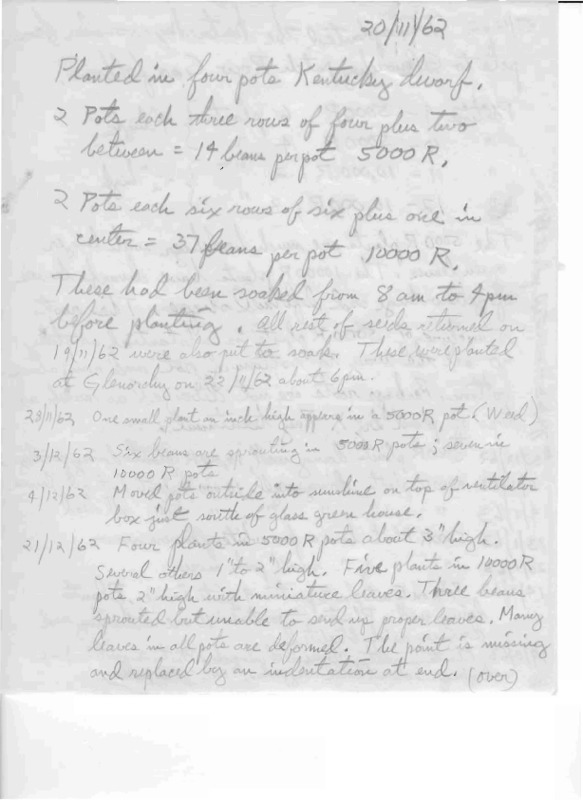 20/11/62
Planted in four pots Kentucky dwarf.
2 Pots each three rows of four plus two
between = 14 beans per pot 5000 R.
2 Pots each six rows of six plus one in
center = 37 beans per pot 10000 R.
These had been soaked from 8 am to 4 pm
before planting. All rest of seeds returned on
19/11/62 were also put to soak. These were planted
at Glenorchy on 22/11/62 about 6 pm.
28/11/62 One small plant an inch high appears in a 5000 R pot (Weed)
3/12/62 Six beans are sprouting in 5000 R pots; seven in
10000 R pots
4/12/62 Moved pots outside into sunshine on top of ventilator
box just south of glass green house.
21/12/62 Four plants in 5000 R pots about 3" high.
Several others 1" to 2" high. Five plants in 10000 R
pots 2" high with miniature leaves. Three beans
sprouted but unable to send up proper leaves. Many
leaves in all pots are deformed. The point is missing
and replaced by an indentation at end. (over)